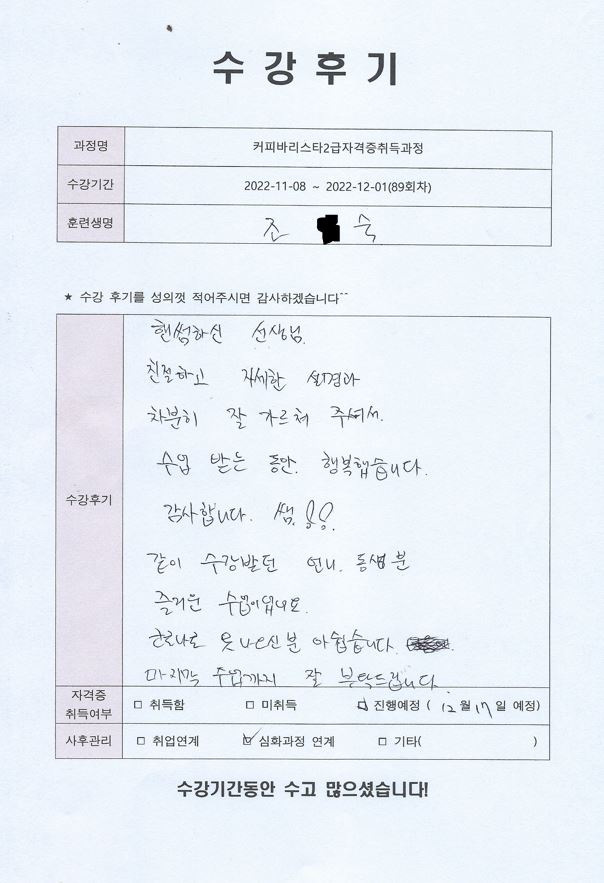 수 강 후 기
과정명 커피바리스타2급자격증취득과정
수강기간 2022-11-08 ~ 2022-12-01(89회차)
훈련생명 조 숙
★ 수강 후기를 성의껏 적어주시면 감사하겠습니다^^
수강후기
핸썸하신 선생님.
친절하고 자세한 설명과
차분히 잘 가르쳐 주셔서.
수업 받는 동안. 행복했습니다.
감사합니다. 쌤.!!.
같이 수강받던 언니. 동생분
즐거운 수업이었네요.
코로나로 못 나오신분 아쉽습니다.
마지막 수업까지 잘 부탁드립니다.
자격증 취득여부 □ 취득함 □ 미취득 ☑ 진행예정 ( 12월 17일 예정)
사후관리 □ 취업연계 ☑ 심화과정 연계 □ 기타( )
수강기간동안 수고 많으셨습니다!